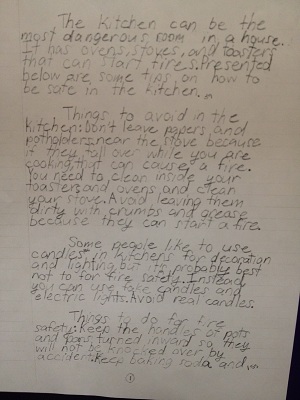 The kitchen can be the
most dangerous room in a house.
It has ovens, stoves, and toasters
that can start fires. Presented
below are some tips on how to
be safe in the kitchen.
Things to avoid in the
kitchen: Don't leave papers and
potholders near the stove because
if they fall over while you are
cooking, that can cause a fire.
You need to clean inside your
toasters and ovens, and clean
your stove. Avoid leaving them
dirty with crumbs and grease
because they can start a fire.
Some people like to use
candles in kitchens for decoration
and lighting, but it's probably best
not to for fire safety. Instead
you can use fake candles and
electric lights. Avoid real candles.
Things to do for fire
safety: Keep the handles of pots
and pans turned inward so they
will not be knocked over by
accident. Keep baking soda and
1